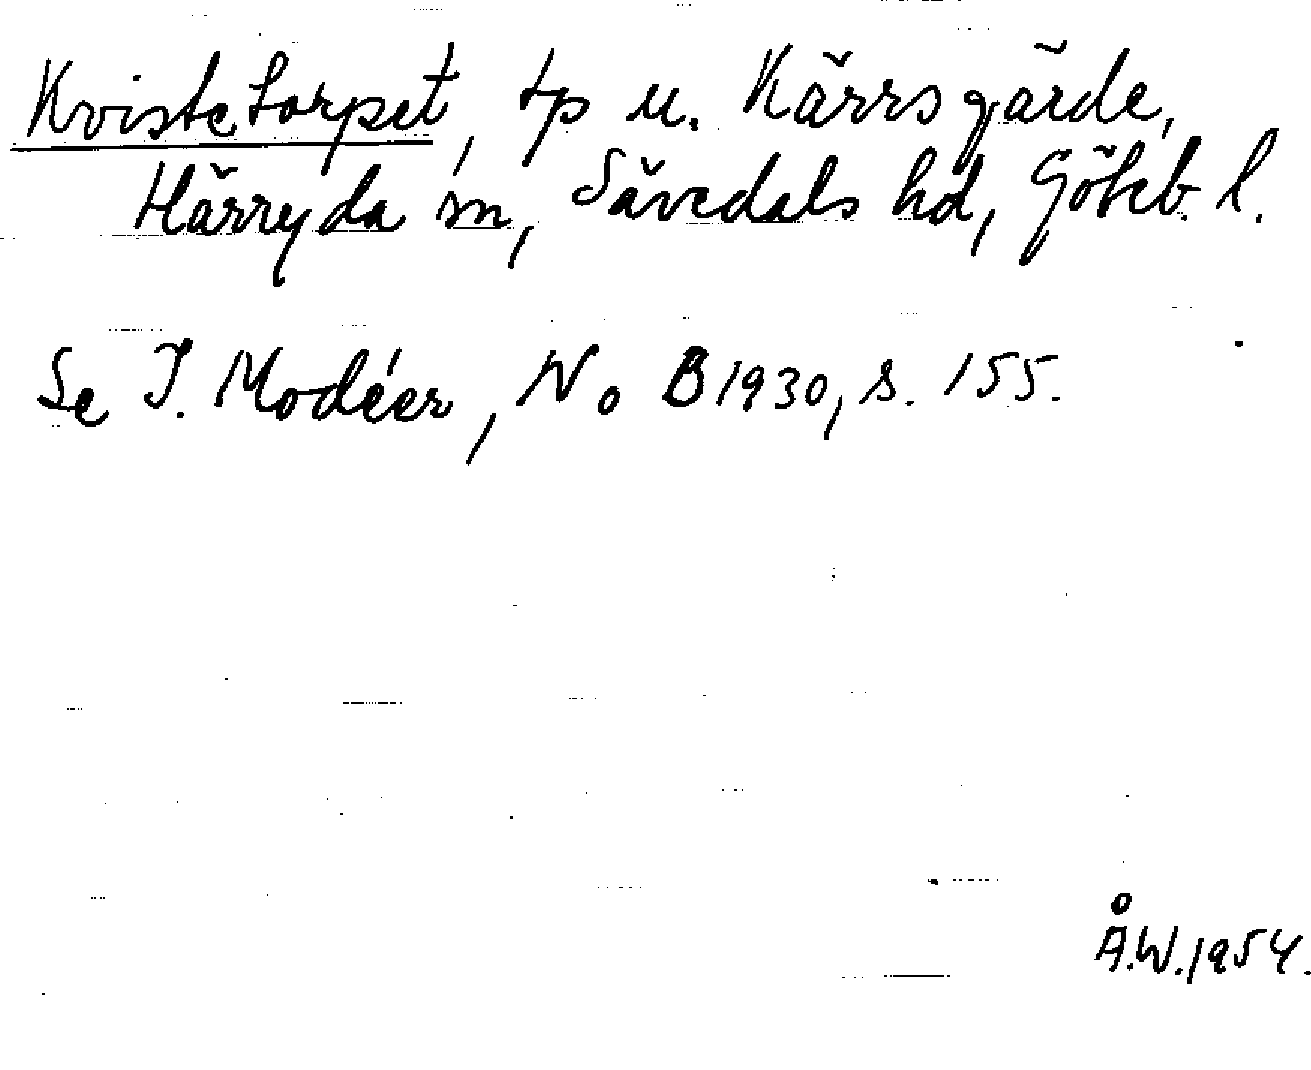 Kvistetorpet, tp u. Kärrsgärde,
Härryda sn, Sävedals hd, Göteb. l.
Se I. Modéer, No B 1930, s. 155.
Å.W. 1954.